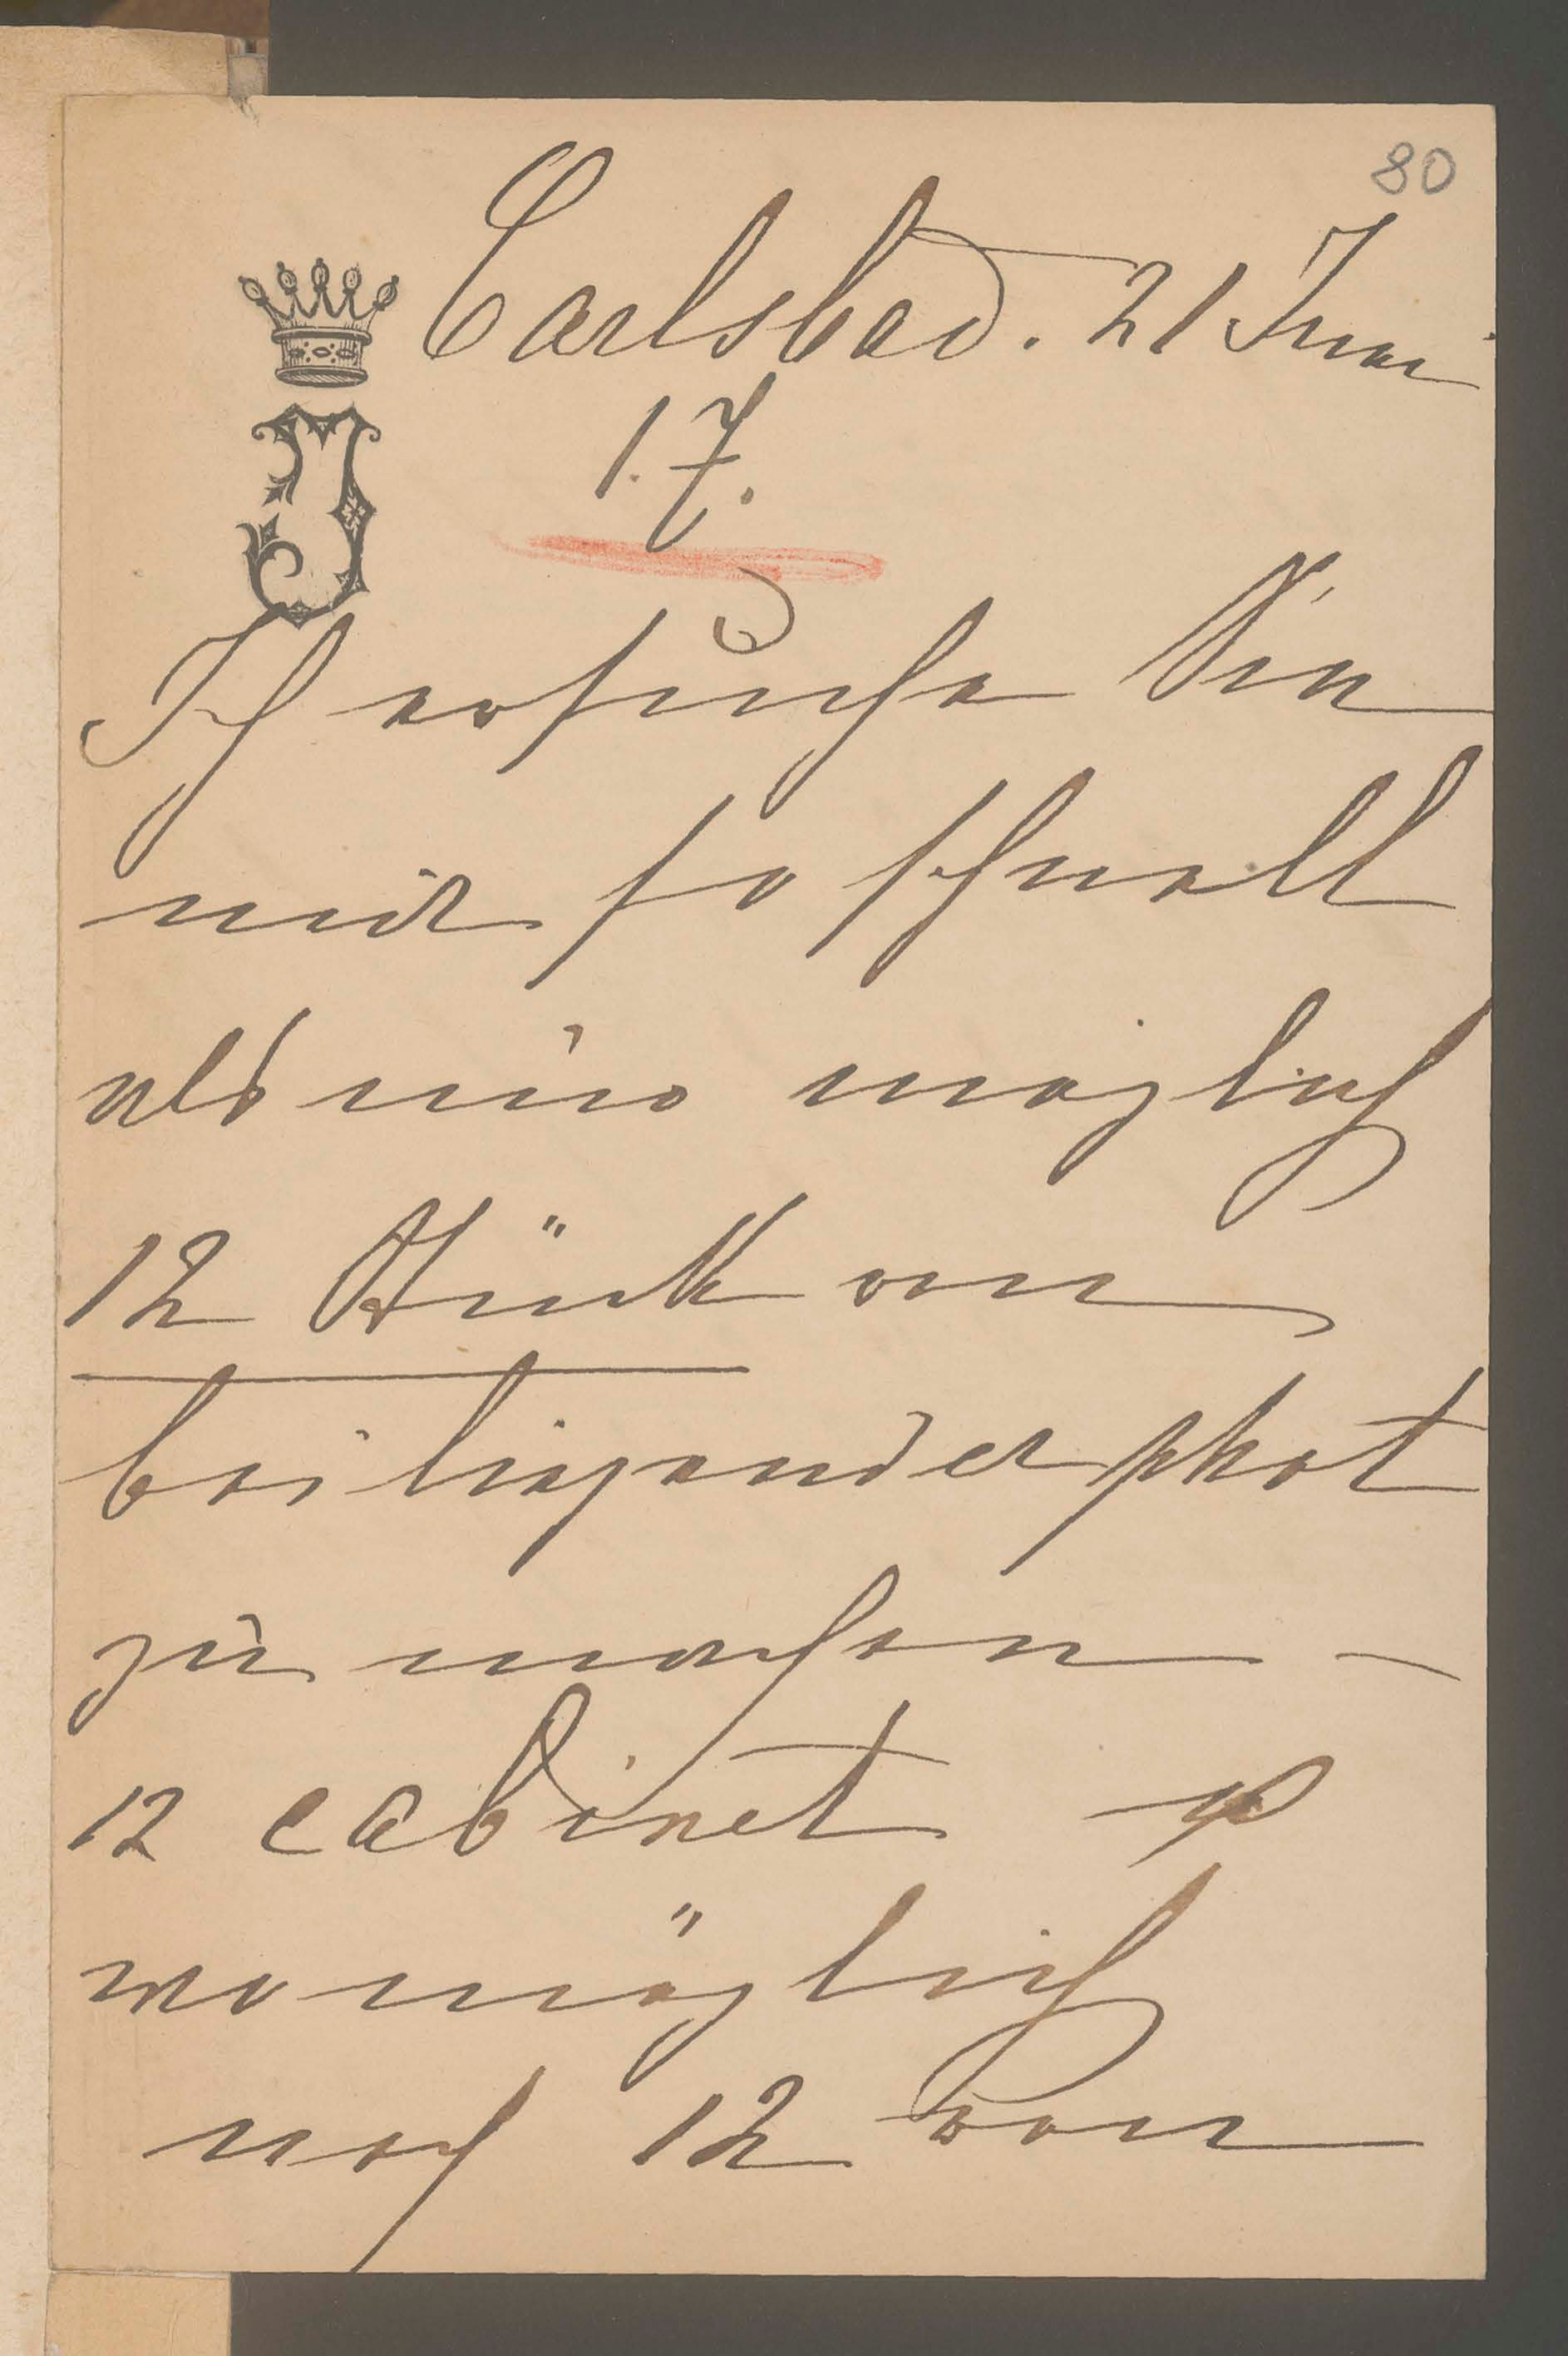 80
Carlsbad. 21 Juni
1.7.
J
Ich ersuche Sie
mir so schnell
als nur möglich
12 Stück von
beiliegender phot
zu machen –
12 cabinet
womöglich
noch 12 von